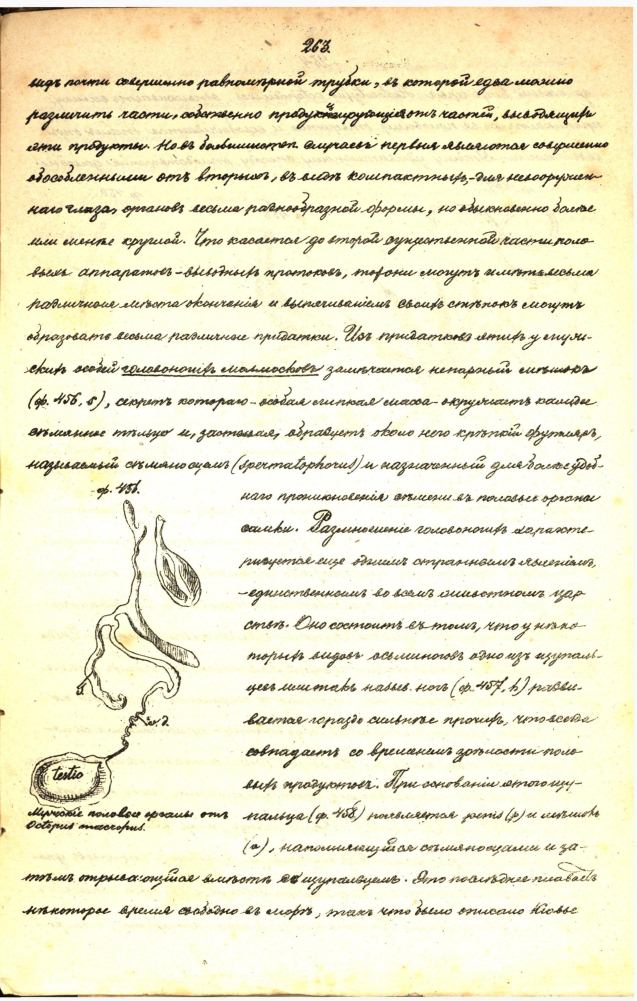 263.
видъ почти совершенно равномѣрной трубки, въ которой едва можно
различить части, собственно продуктирующія отъ частей, выводящихъ
эти продукты. Но въ большинствѣ случаевъ первыя являются совершенно
обособленными отъ вторыхъ, въ видѣ компактныхъ для невооружен-
наго глаза, органовъ весьма разнообразной формы, но обыкновенно болѣе
или менѣе круглой. Что касается до второй существенной части поло-
выхъ аппаратовъ - выводныхъ протоковъ, то они могутъ имѣть весьма
различныя мѣста окончанія и выпячиваніемъ своихъ стѣнокъ могутъ
образовать весьма различные придатки. Изъ придатковъ этихъ у муж-
скихъ особей головоногихъ моллюсковъ замѣчается непарный мѣшокъ
(ф. 456, s), секретъ котораго - особая липкая масса - окружаетъ каждое
сѣмянное тѣльце и, застывая, образуетъ около него крѣпкій футляръ,
называемый сѣмяносцемъ (spermatophorus) и назначенный для болѣе удоб-
ф. 456.
наго проникновенія сѣмени въ половые органы
самки. Размноженіе головоногихъ характе-
ризуется еще однимъ страннымъ явленіемъ,
- единственнымъ во всемъ животномъ цар-
ствѣ. Оно состоитъ въ томъ, что у нѣко-
торыхъ видовъ осьминоговъ одно изъ щупаль-
цевъ или такъ назыв. ногъ (ф. 457, h) разви-
вается гораздо сильнѣе прочихъ, что всегда
v. d.
совпадаетъ со временемъ зрѣлости поло-
testis
выхъ продуктовъ. При основаніи этого щу-
Мужскіе половые органы отъ
Octopus macropus.
пальца (ф. 458) появляется penis (p) и мѣшокъ
(a), наполняющійся сѣмяносцами и за-
тѣмъ отрывающійся вмѣстѣ со щупальцемъ. Это послѣднее плаваетъ
нѣкоторое время свободно въ морѣ, такъ что было описано Кювье